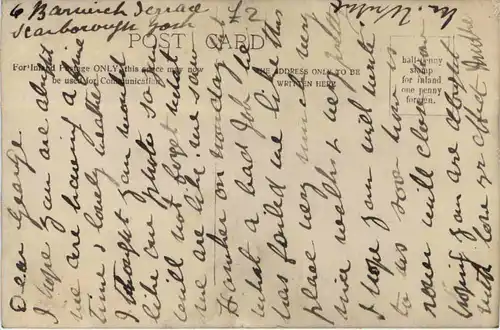 6 Barwick Terrace
Scarborough York
POST CARD
For Inland Postage ONLY this space may now
be used for Communication.
THE ADDRESS ONLY TO BE
WRITTEN HERE
halfpenny
stamp
for inland
one penny
foreign.
Dear George
I hope you are alright
we are having a fine
time & lovely weather
I thought you would
like our photo so you
will not forget what
we are like. we saw
on monday
what a bad Job he
has failed we like this
place very much very
nice walks &
I hope you will write
to us soon now
now will close now
hoping you are alright
with love yr affect